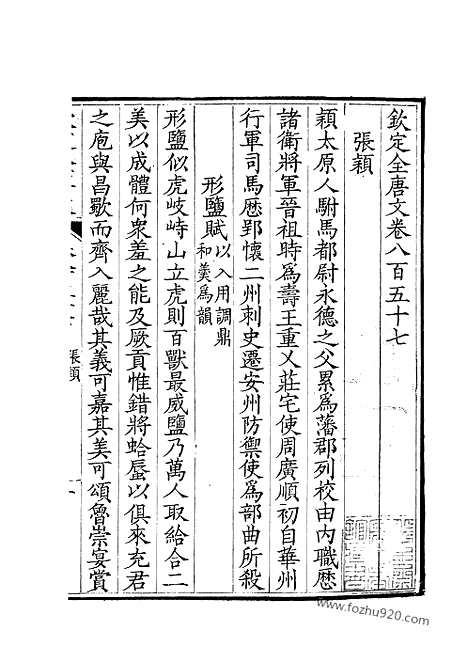 欽定全唐文卷八百五十七
張穎
穎太原人駙馬都尉永德之父累爲藩郡列校由內職歷
諸衛將軍晉祖時爲壽王重乂莊宅使周廣順初自華州
行軍司馬歷郢懷二州刺史遷安州防禦使爲部曲所殺
形鹽賦以入用調鼎
和羹爲韻
形鹽似虎岐峙山立虎則百獸最威鹽乃萬人取給合二
美以成體何衆羞之能及厥貢惟錯將蛤蜃以俱來充君
之庖與昌歜而齊入麗哉其義可嘉其美可頌魯崇宴賞
張穎
一
www.fozhu920.com